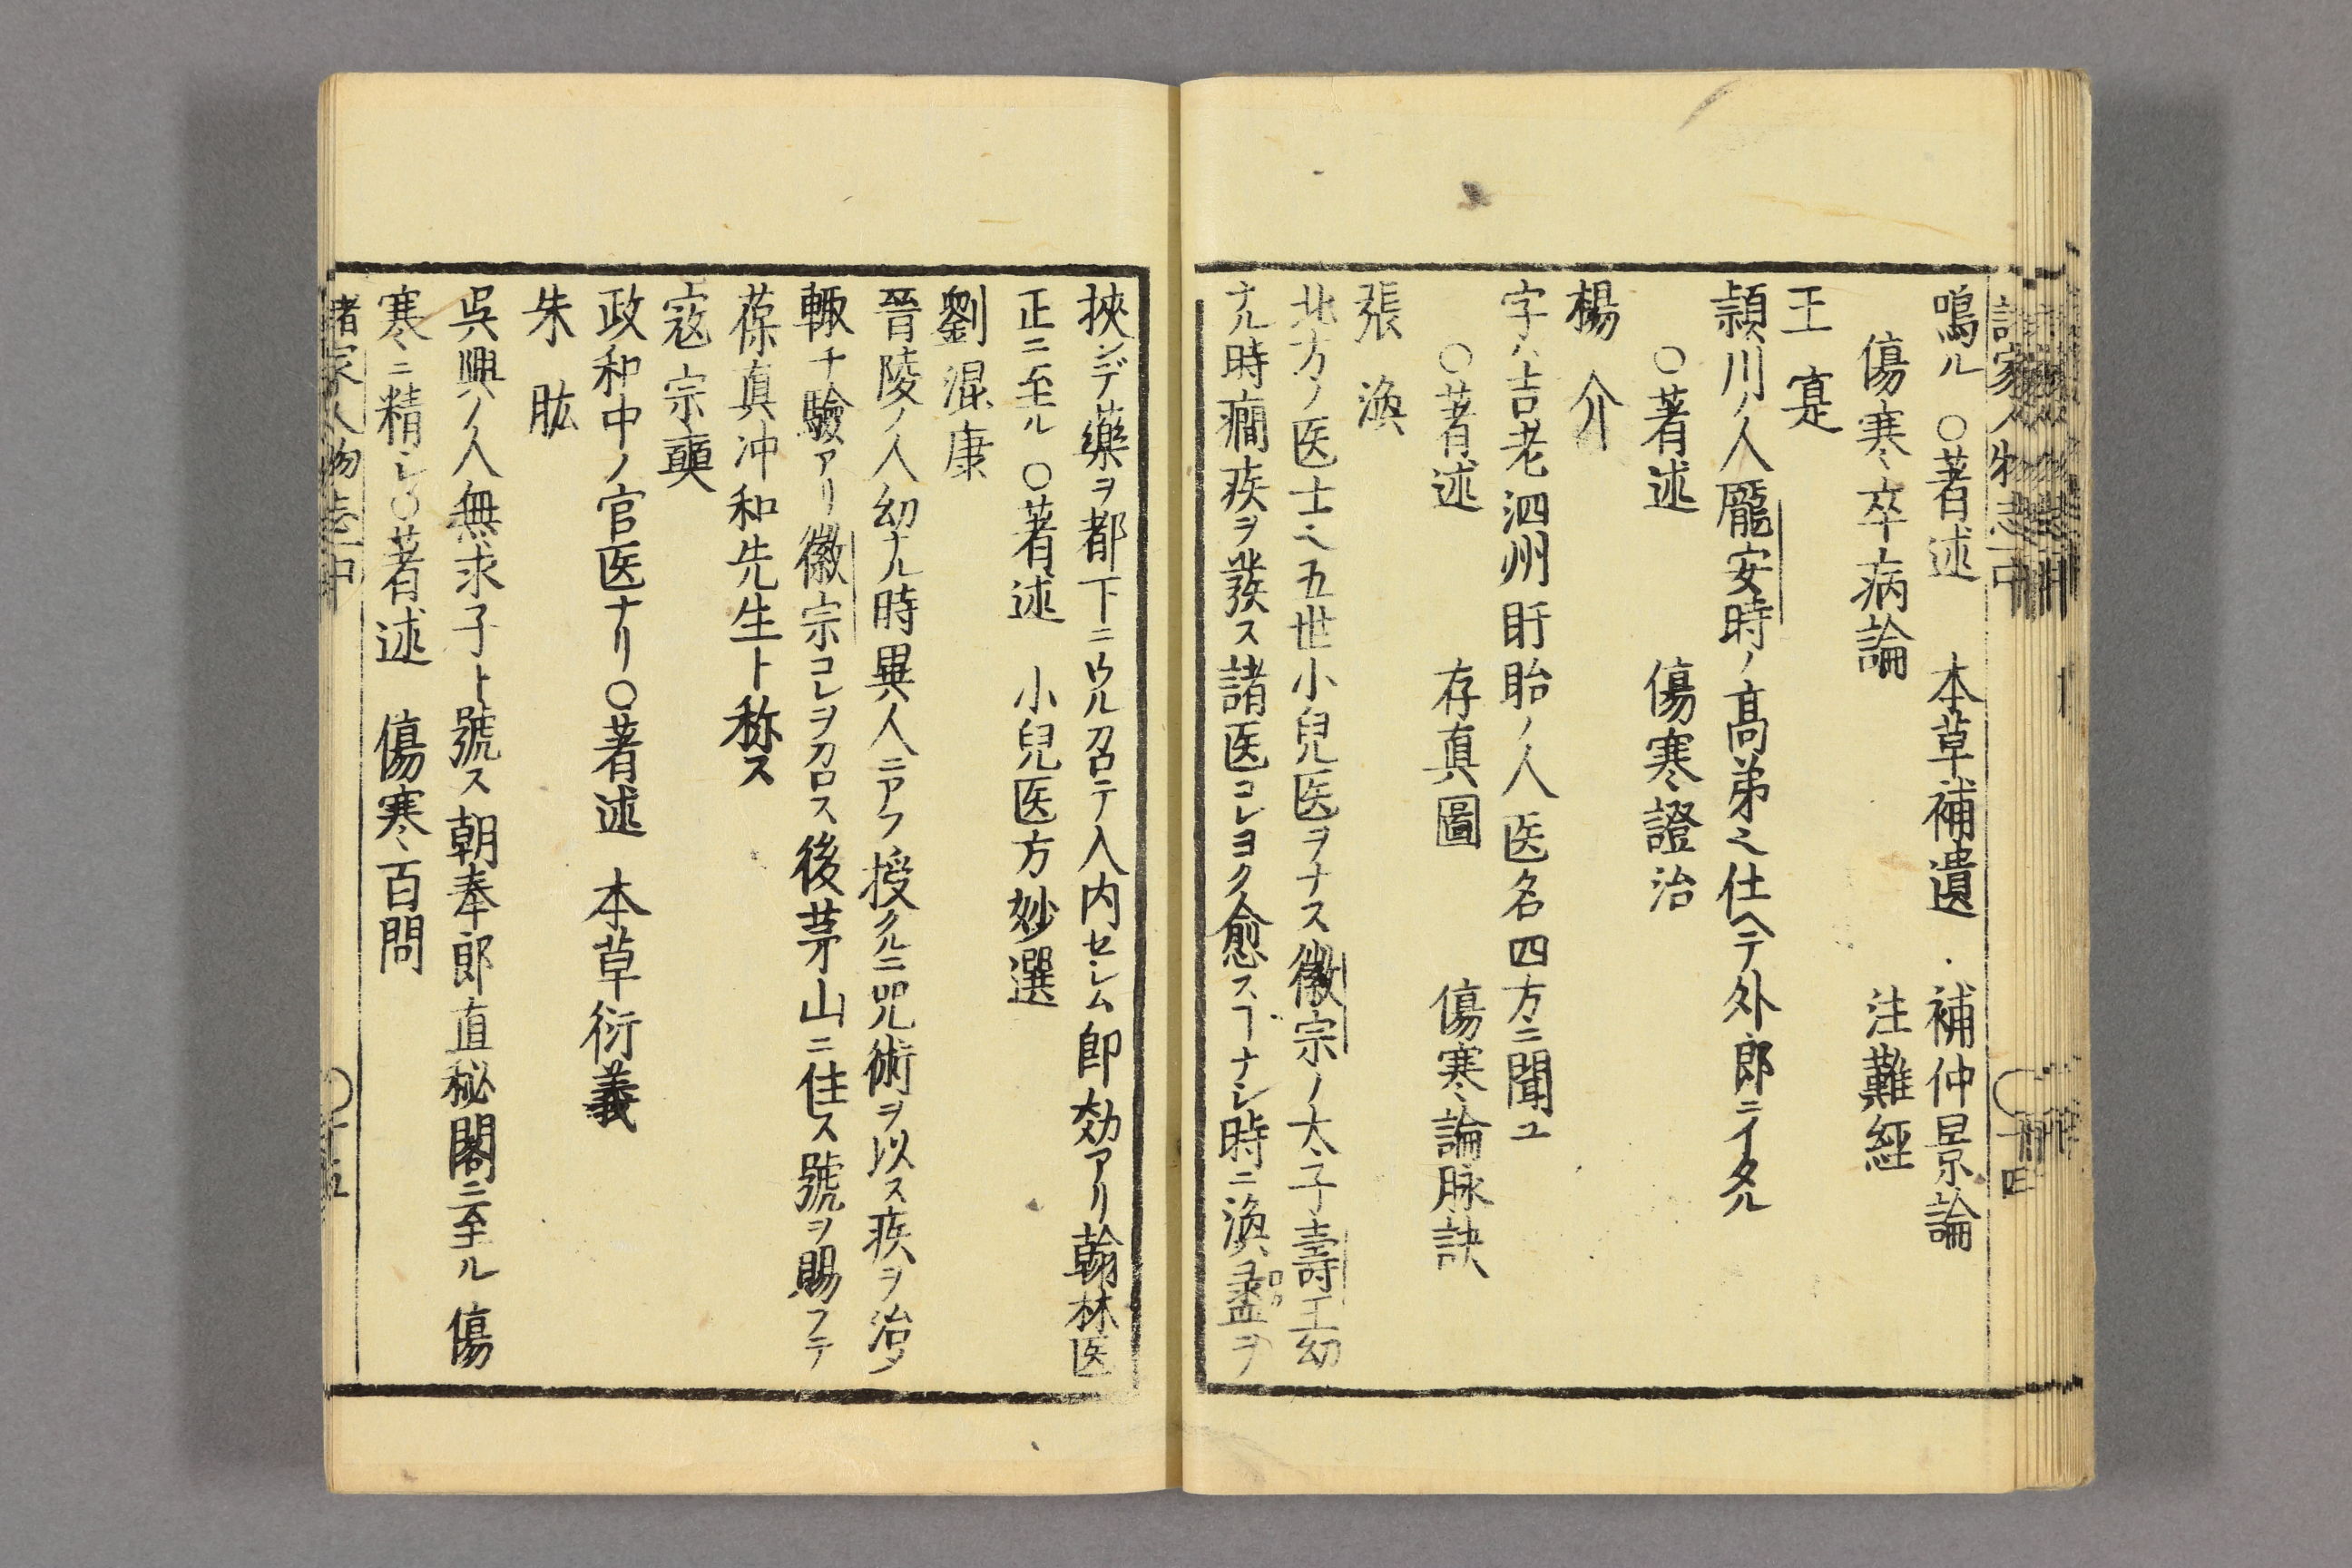 鳴ル　〇著述　本草補遺　補仲景論
傷寒卒病論　注難経
王寔
頴川ノ人龐安時ノ髙弟ミ仕ヘテ外郎ニイタル
〇著述　傷寒證治
楊介
字ハ吉老泗州盱眙ノ人医名四方ニ聞ユ
〇著述　存真圖　傷寒論脉訣
張渙
北方ノ医士ミ五世小兒医ヲナス徽宗ノ太子壽王幼
ナル時癇疾ヲ發ス諸医コレヨク愈スヿナシ時ニ渙ヲ
挾ンデ藥ヲ都下ニウル召テ入内セシム即効アリ翰林医
正ニ至ル　〇著述　小兒医方妙選
劉混康
晉陵ノ人幼ナル時異人ニアフ授クルニ咒術ヲ以ス疾ヲ治メ
輙チ驗アリ徽宗コレヲ召ス後茅山ニ住ス號ヲ賜フテ
葆真冲和先生ト称ス
寇宗奭
政和中ノ官医ナリ〇著述　本草衍義
朱肱
呉興ノ人無求子ト號ス朝奉郎直秘閣ニ至ル傷
寒ニ精シ〇著述　傷寒百問
諸家人物志中